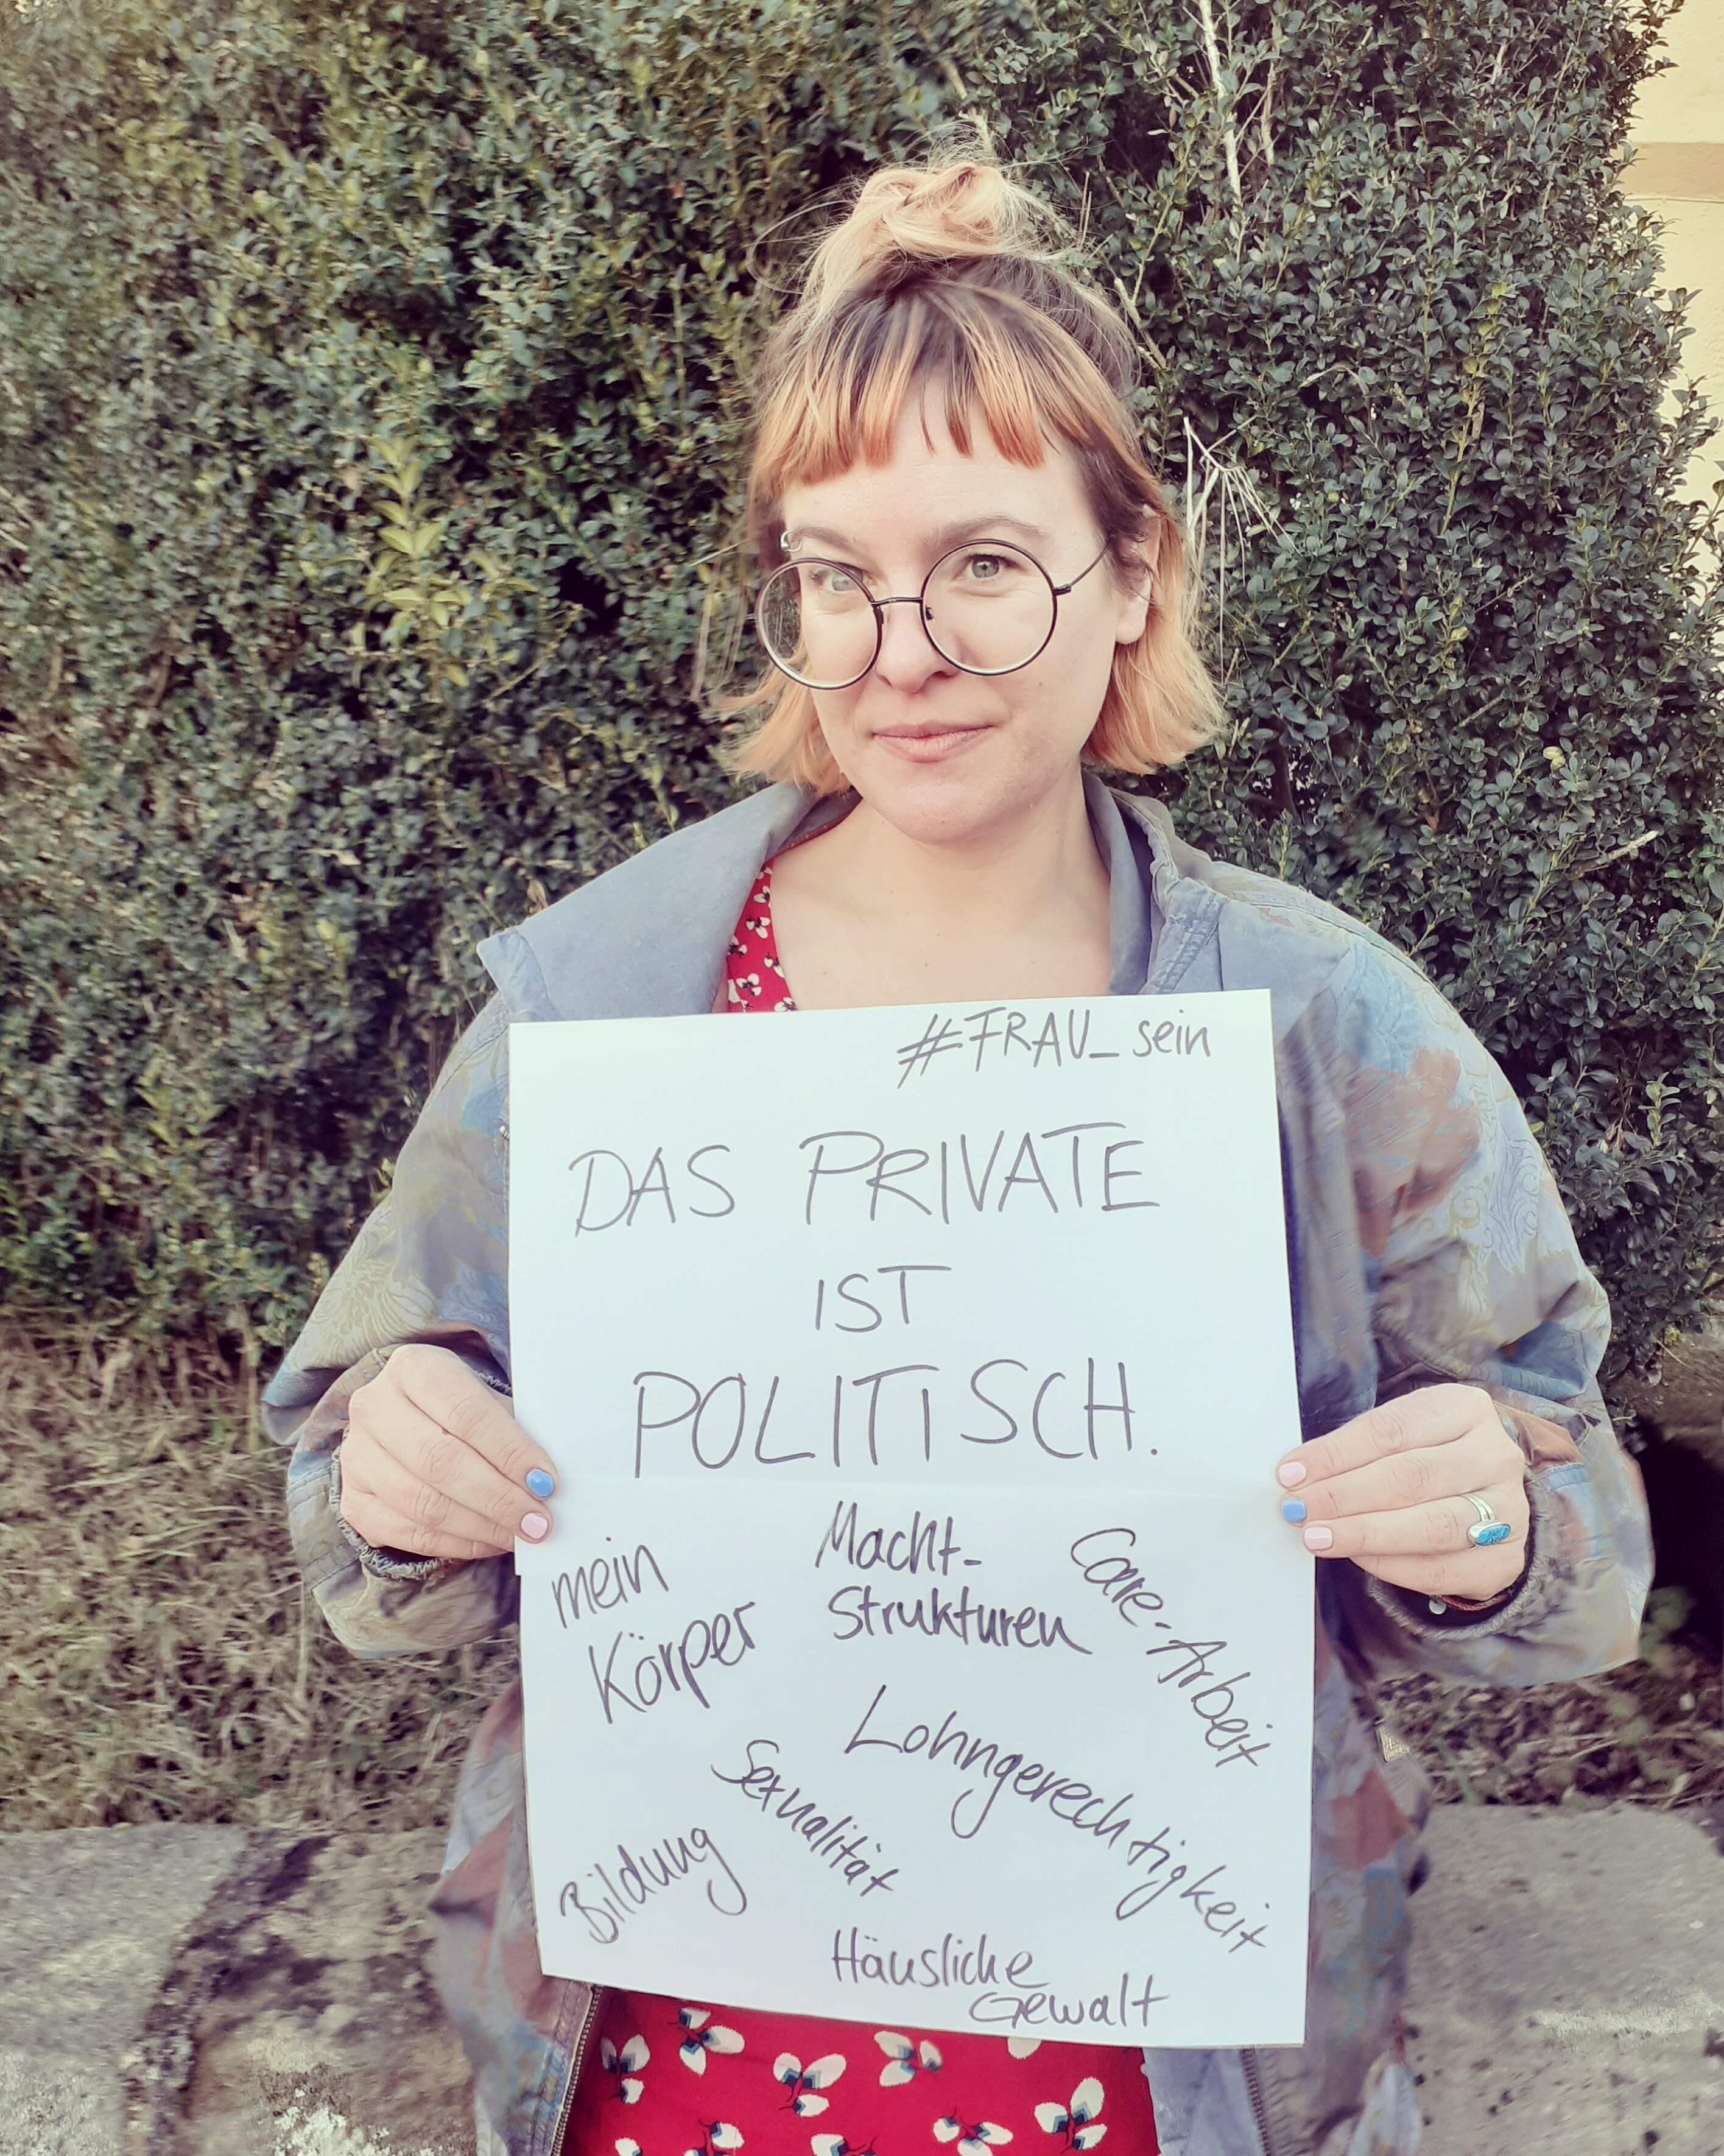 #FRAU_sein
DAS PRIVATE
IST
POLITISCH.
mein
Körper
Macht-
Strukturen
Care-Arbeit
Lohngerechtigkeit
Sexualität
Bildung
Häusliche
Gewalt